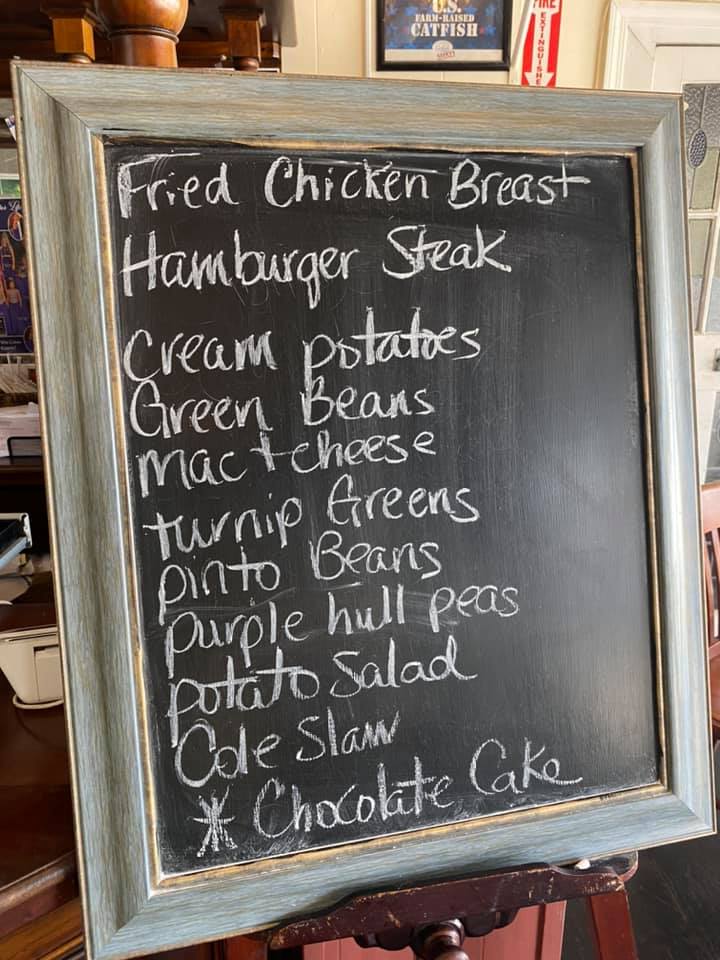 U.S.
FARM-RAISED
CATFISH
FIRE
EXTINGUISHER
Fried Chicken Breast
Hamburger Steak
Cream potatoes
Green Beans
mac + cheese
turnip Greens
pinto Beans
purple hull peas
potato Salad
Cole Slaw
* Chocolate Cake